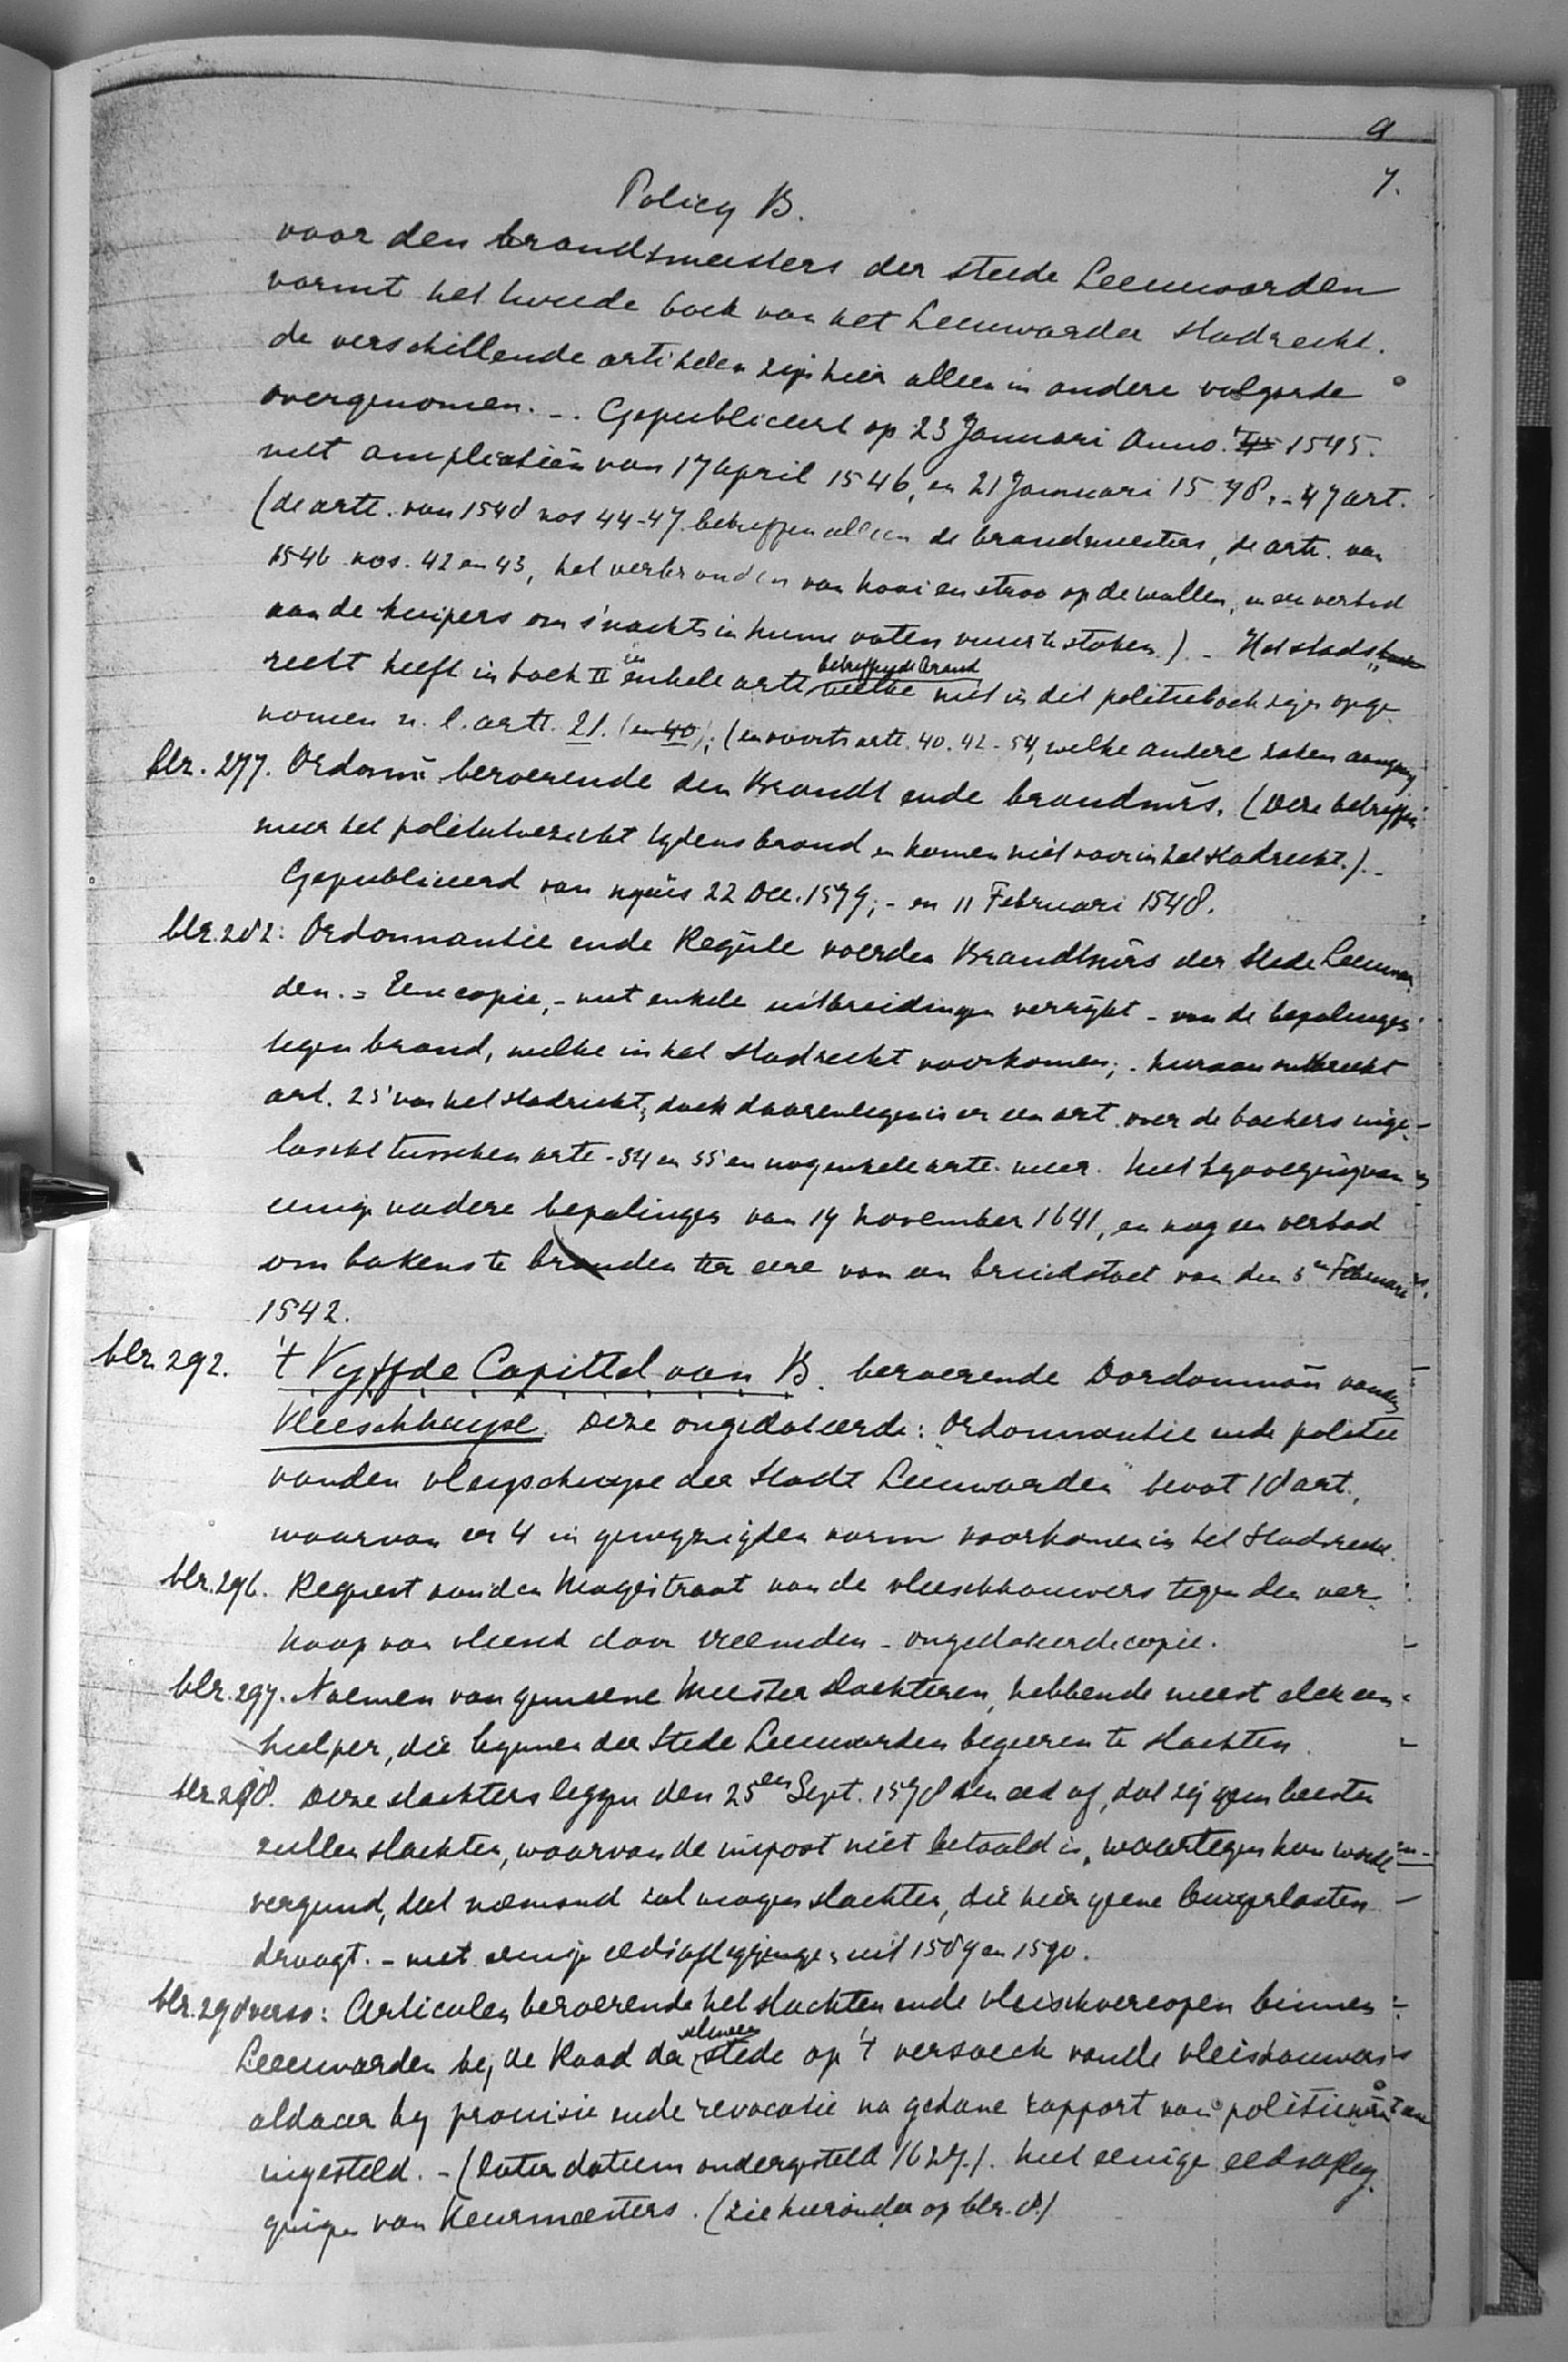 a
7.
Policy B.
voor den brandtmeesters der steede Leeuwarden
vormt het tweede boek van het Leeuwarder Stadrecht.
de verschillende artikelen zijn hier alleen in andere volgorde
overgenomen. -. Gepubliceerd op 23 Januari Anno. 1545.
met ampliatiën van 17 April 1546, en 21 Januari 1548. - 47 art.
(de artt. van 1548 nos 44-47 betreffen alleen de brandmeesters, de artt. van
1546 nos. 42 en 43, het verbranden van hooi en stroo op de wallen, en een verbod
aan de kuipers om s'nachts in hunne vaten vuur te stoken.) - Het stads
recht heeft in boek II enkele artt. betreffende brand welke niet in dit politieboek zijn opge
nomen n. l. artt. 21. (en 40); (en voorts artt. 40. 42 - 54, welke andere zaken aangaan
blz. 277. Ordonnā beroerende den Brandt ende brandmrs. (Deze betreffen
meer het politietoezicht tydens brand en komen niet voor in het stadrecht.). -
Gepubliceerd van nyeuws 22 Dec. 1579; - en 11 Februari 1548.
blz. 282: Ordonnantie ende Regule voer den Brandtmrs der Stede Leeuwar
den. = Eene copie, - met enkele uitbreidingen verrijkt - van de bepalingen
tegen brand, welke in het stadrecht voorkomen; . hieraan ontbreekt
art. 25 van het stadrecht, doch daarentegen is er een art. over de backers inge-
lascht tusschen artt. - 34 en 35 en nog enkele artt. meer. Met bijvoeging van
eenige nadere bepalingen van 14 November 1641, en nog een verbod
om bakens te branden ter eere van een bruidstoet van den 5en Februari
1542.
blz 292. 't Vyffde Capittel van B. beroerende Dordonnān vanden
Vleeschhuyse. Deze ongedateerde: "Ordonnantie ende politie
vanden vleyschuyse der Stadt Leeuwarden" bevat 18 art.,
waarvan er 4 in gewyzigden vorm voorkomen in het Stadrecht.
blz. 296. Request aan den Magistraat van de vleeschhouwers tegen den ver-
koop van vleesch door vreemden - ongedateerde copie.
blz. 297. Naemen van gemeene Meester Slachteren, hebbende meest elck een
hulper, die bynnen der Stede Leeuwarden begeeren te slachten.
blz. 298. Deze slachters leggen den 25en Sept. 1578 den eed af, dat zij geen beesten
zullen slachten, waarvan de impost niet betaald is, waartegen hun wordt
vergund, dat niemand zal mogen slachten, die hier geene burgerlasten
draagt. - met eenige eedsafleggingen uit 1589 en 1590.
blz. 298 verso: Articulen beroerende het slachten ende vleischvercopen binnen
Leeuwarden bij de Raad der selver stede op 't versoeck van de vleishouwers
aldaer by provisie ende revocatie na gedane rapport van
ingesteld. - (later datum ondergesteld 1627.). Met eenige eedsafleg
gingen van Keurmeesters. (zie hieronder op blz. 8.)